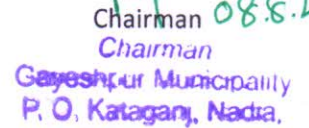 Chairman 08.8.
Chairman
Gayeshpur Municipality
P. O, Kataganj, Nadia,